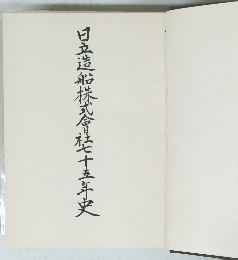 日立造船株式會社七十五年史